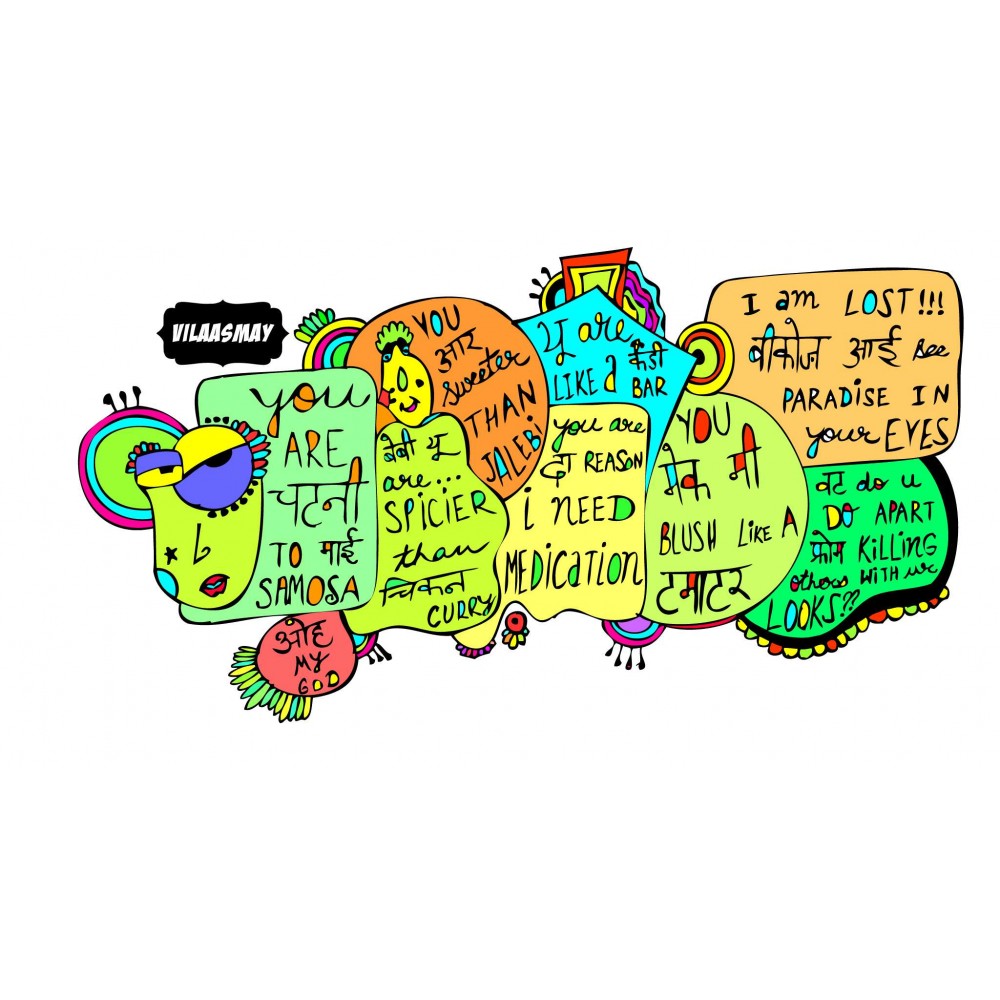 VILAASMAY
you
ARE
चटनी
TO माई
SAMOSA
ओह
MY
GOD
YOU
आर
sweeter
THAN
JALEBI
बेबी यू
are...
SPICIER
than
चिकन
CURRY
यू are
LIKE a कैंडी
BAR
you are
द REASON
i NEED
MEDICATION
YOU
मेक मी
BLUSH LIKE A
टमाटर
I am LOST!!!
बीकोज आई see
PARADISE IN
your EYES
वट do u
DO APART
फ्रोम KILLING
others WITH ur
LOOKS??